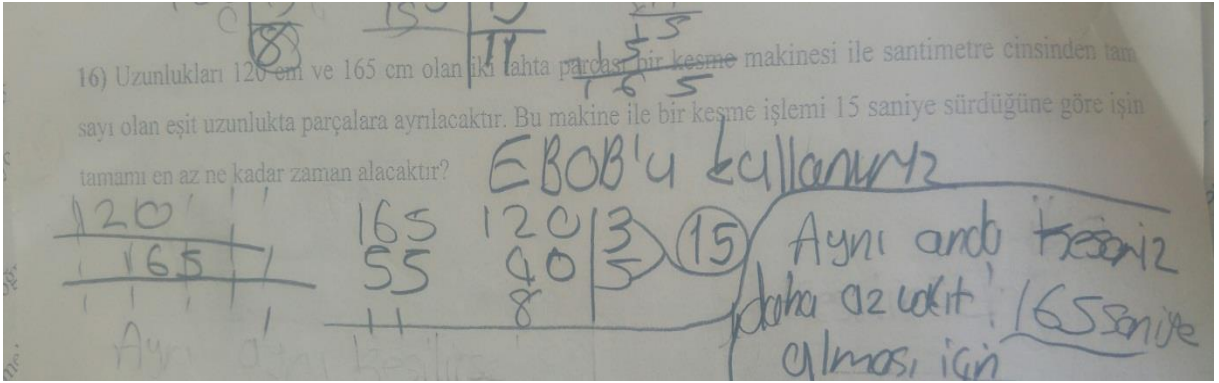 8 15 11
15
165
16) Uzunlukları 120 cm ve 165 cm olan iki tahta parçası bir kesme makinesi ile santimetre cinsinden tam
sayı olan eşit uzunlukta parçalara ayrılacaktır. Bu makine ile bir kesme işlemi 15 saniye sürdüğüne göre işin
tamamı en az ne kadar zaman alacaktır?
EBOB'u kullanırız
120
165
165 120 3
55 40 5
11 8
15
Aynı anda keseriz
daha az vakit
alması için
165 saniye
Aynı